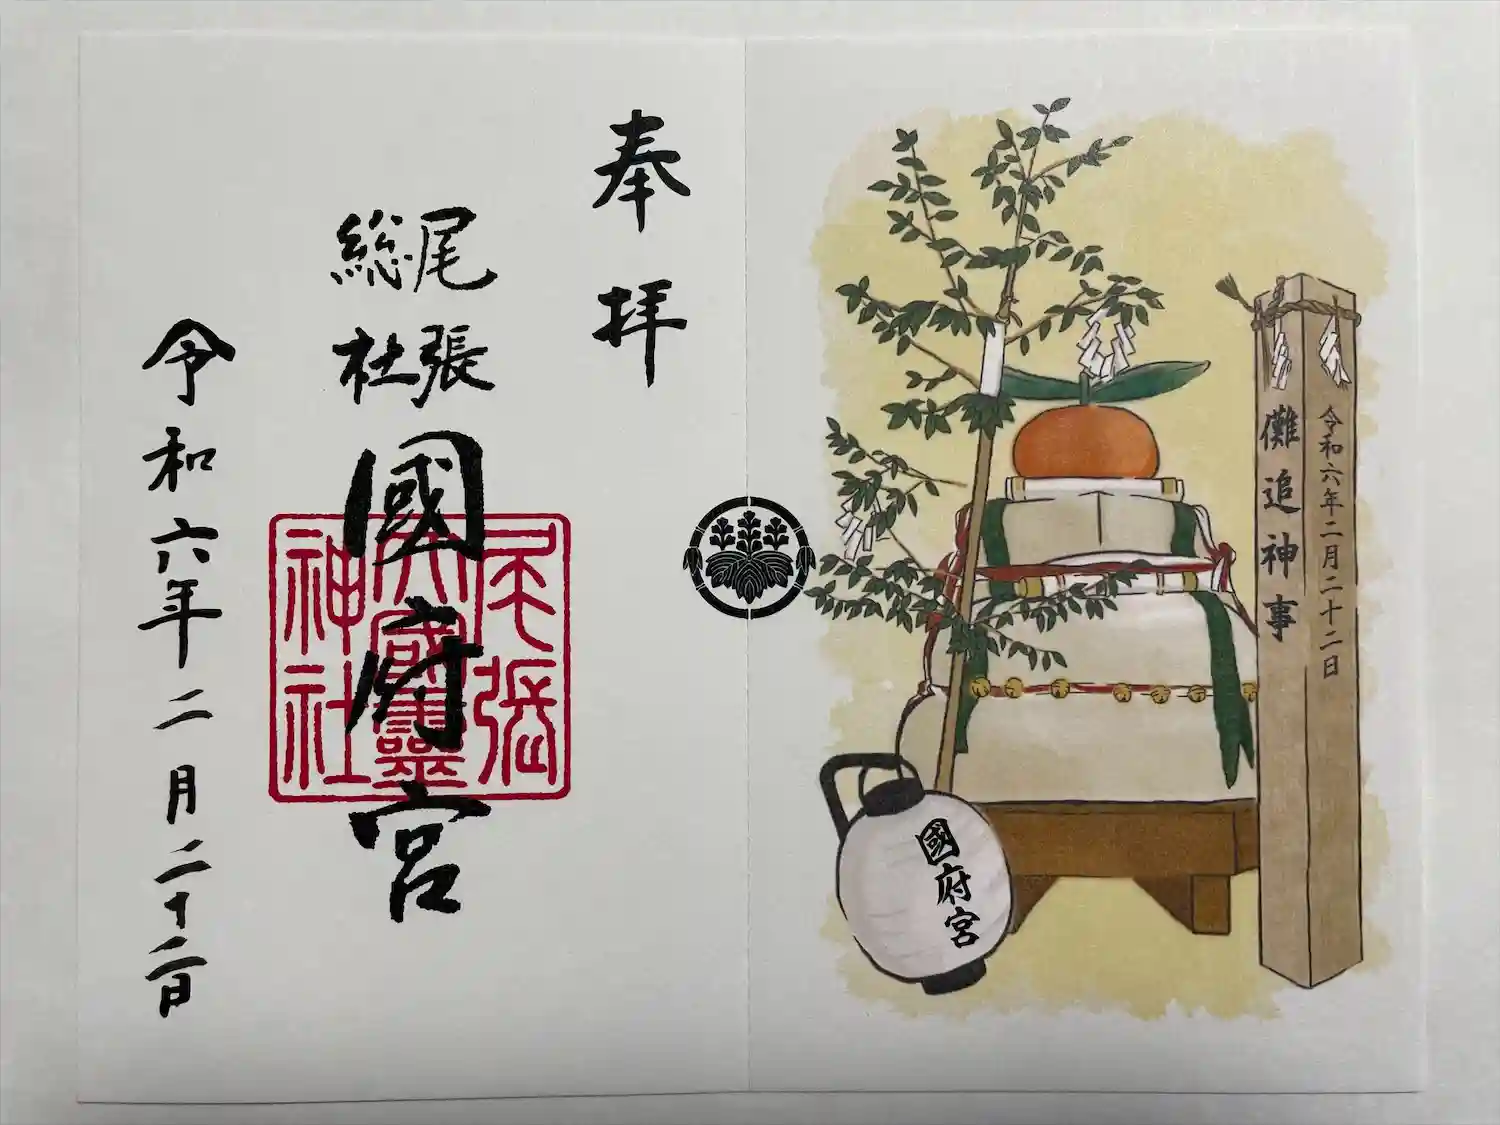 奉拝
尾張
総社
國府宮
尾張
大國霊
神社
令和六年二月二十二日
國府宮
令和六年二月二十二日
儺追神事